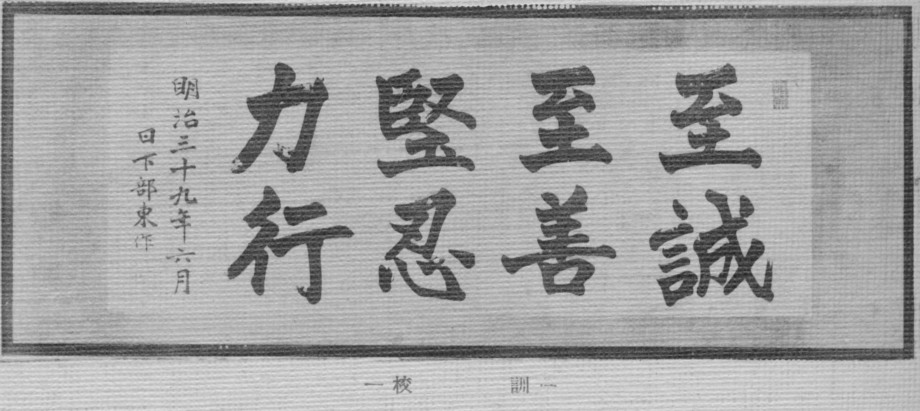 至誠
至善
竪忍
力行
明治三十九年六月
日下部東作
— 校 訓 —